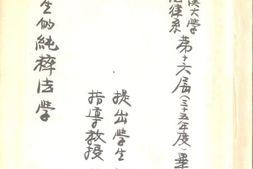 漢大學
法律系
第十六屆(三十五年度)畢
提出學生
指導教授
生的純粹法學